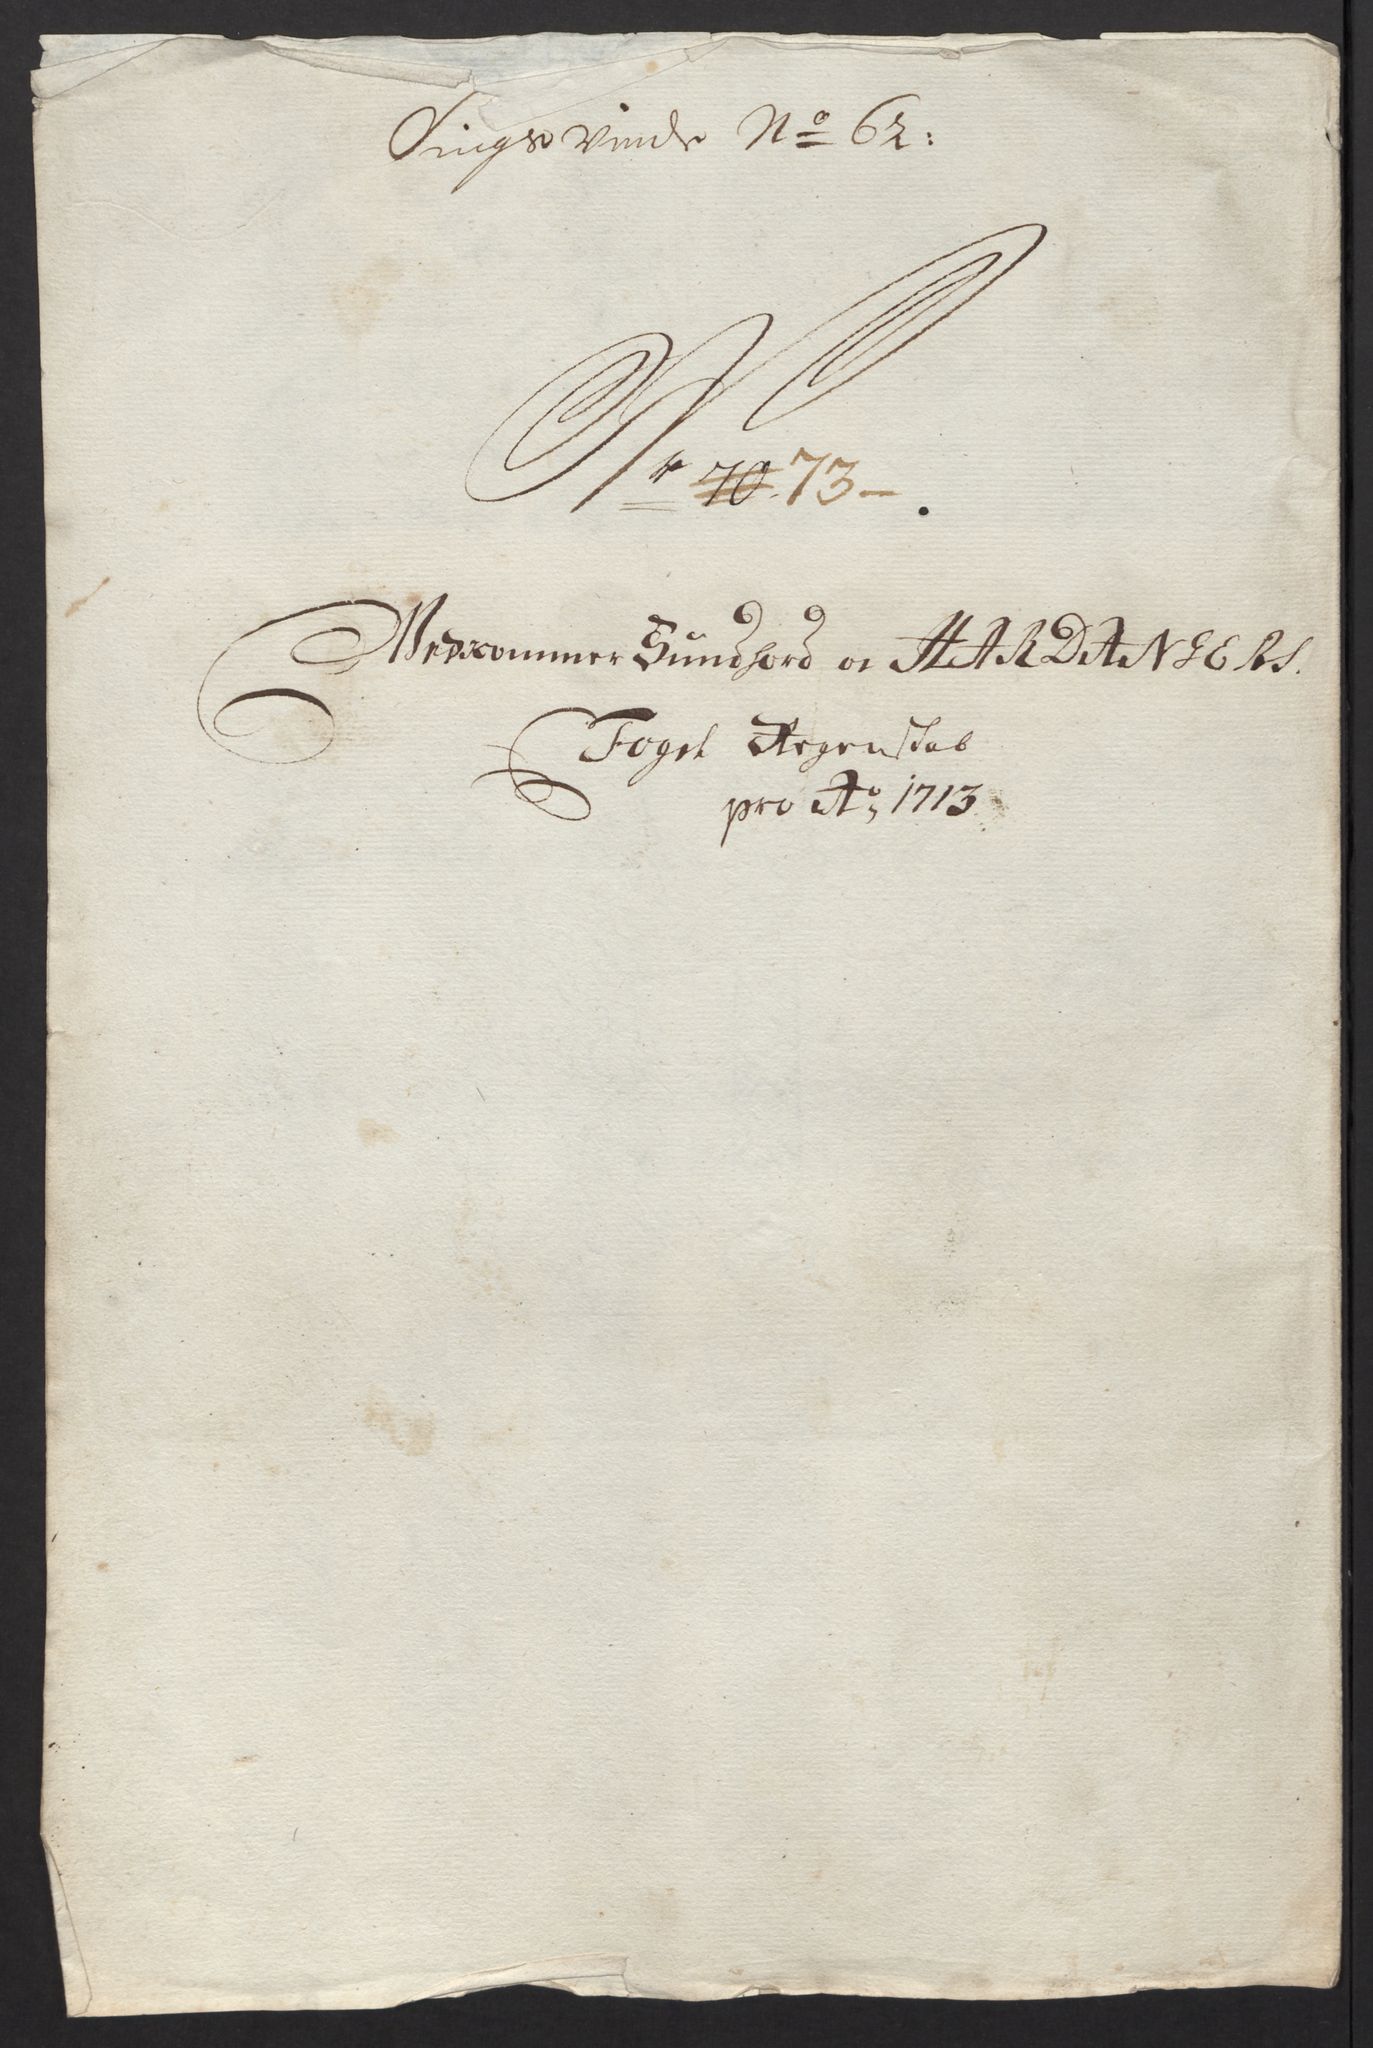 Tingsvinde No 62:
Nr 70. 73 -
Vedkommer Sundhord oc HARDANGERS.
Foget Regenskab
pro Ao, 1713